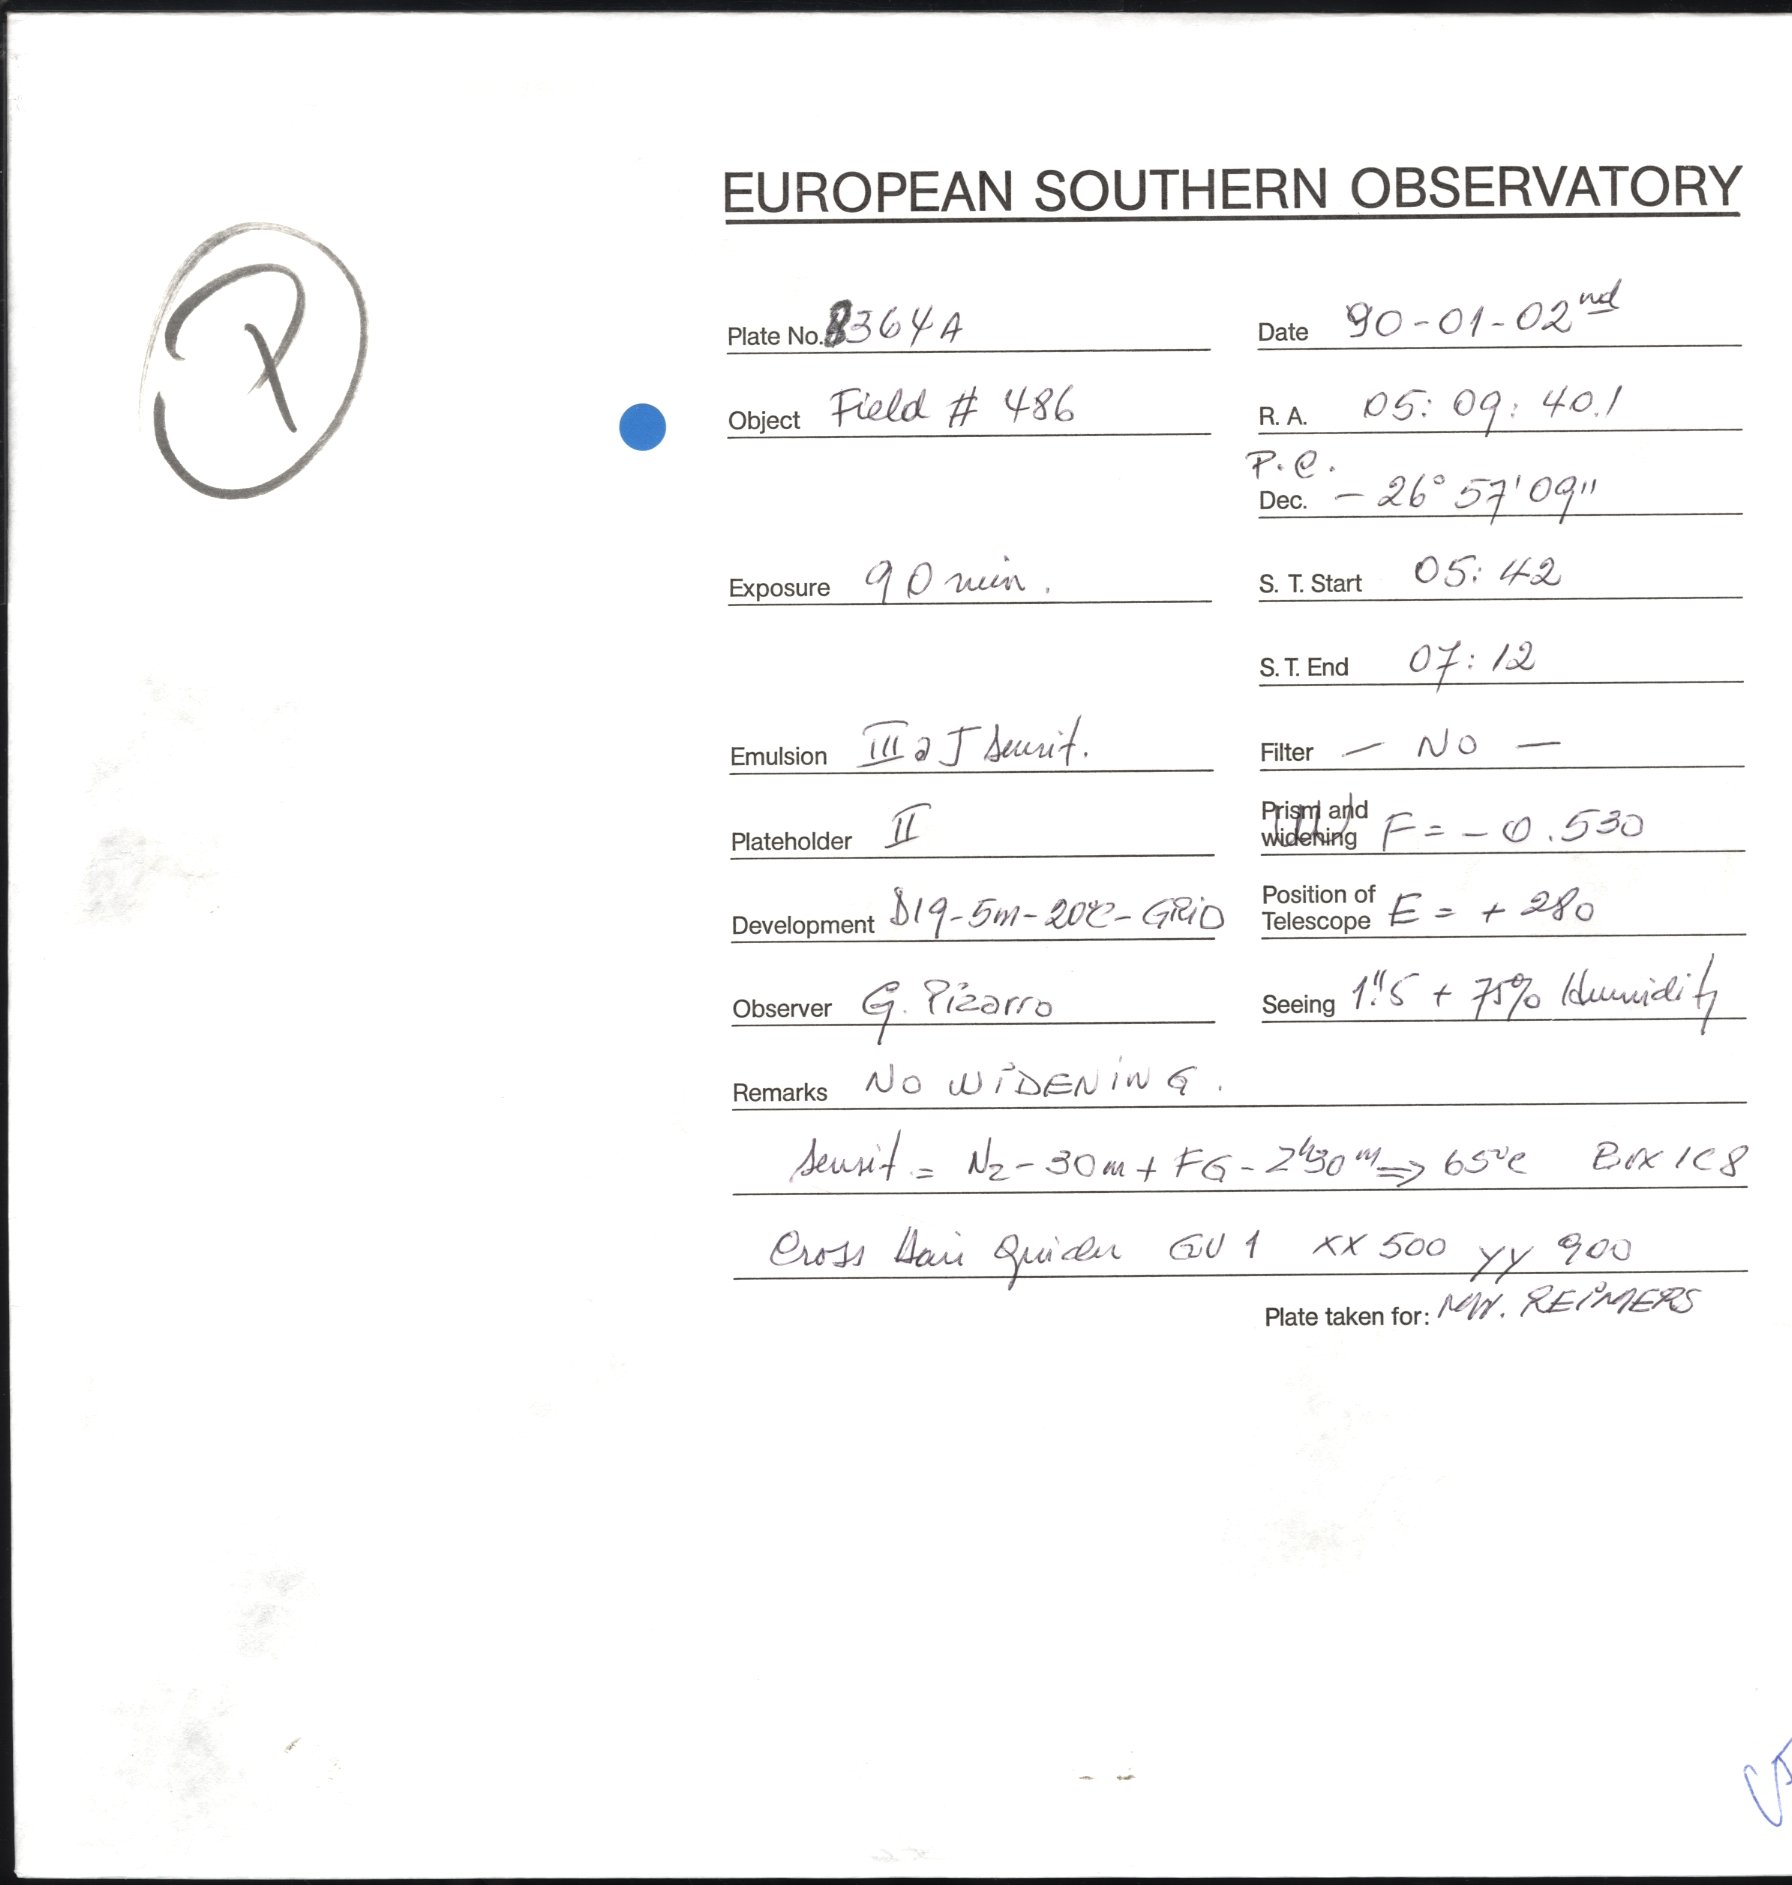 EUROPEAN SOUTHERN OBSERVATORY
P
Plate No. 8364A Date 90-01-02nd
Object Field # 486 R. A. 05: 09: 40.1
P.C.
Dec. - 26° 57' 09"
Exposure 90 min. S. T. Start 05: 42
S. T. End 07: 12
Emulsion III a J sensit. Filter - NO -
Plateholder II Prism and widening F = - 0.530
Development D19-5m-20°C-GRiD Position of Telescope E = + 280
Observer G. Pizarro Seeing 1".5 + 75% Humidity
Remarks NO WiDENiNG.
sensit. = N2 - 30m + FG - 2h30m => 65°C Box 1C8
Cross Hair Guider GU 1 XX 500 yy 900
Plate taken for: REiMERS